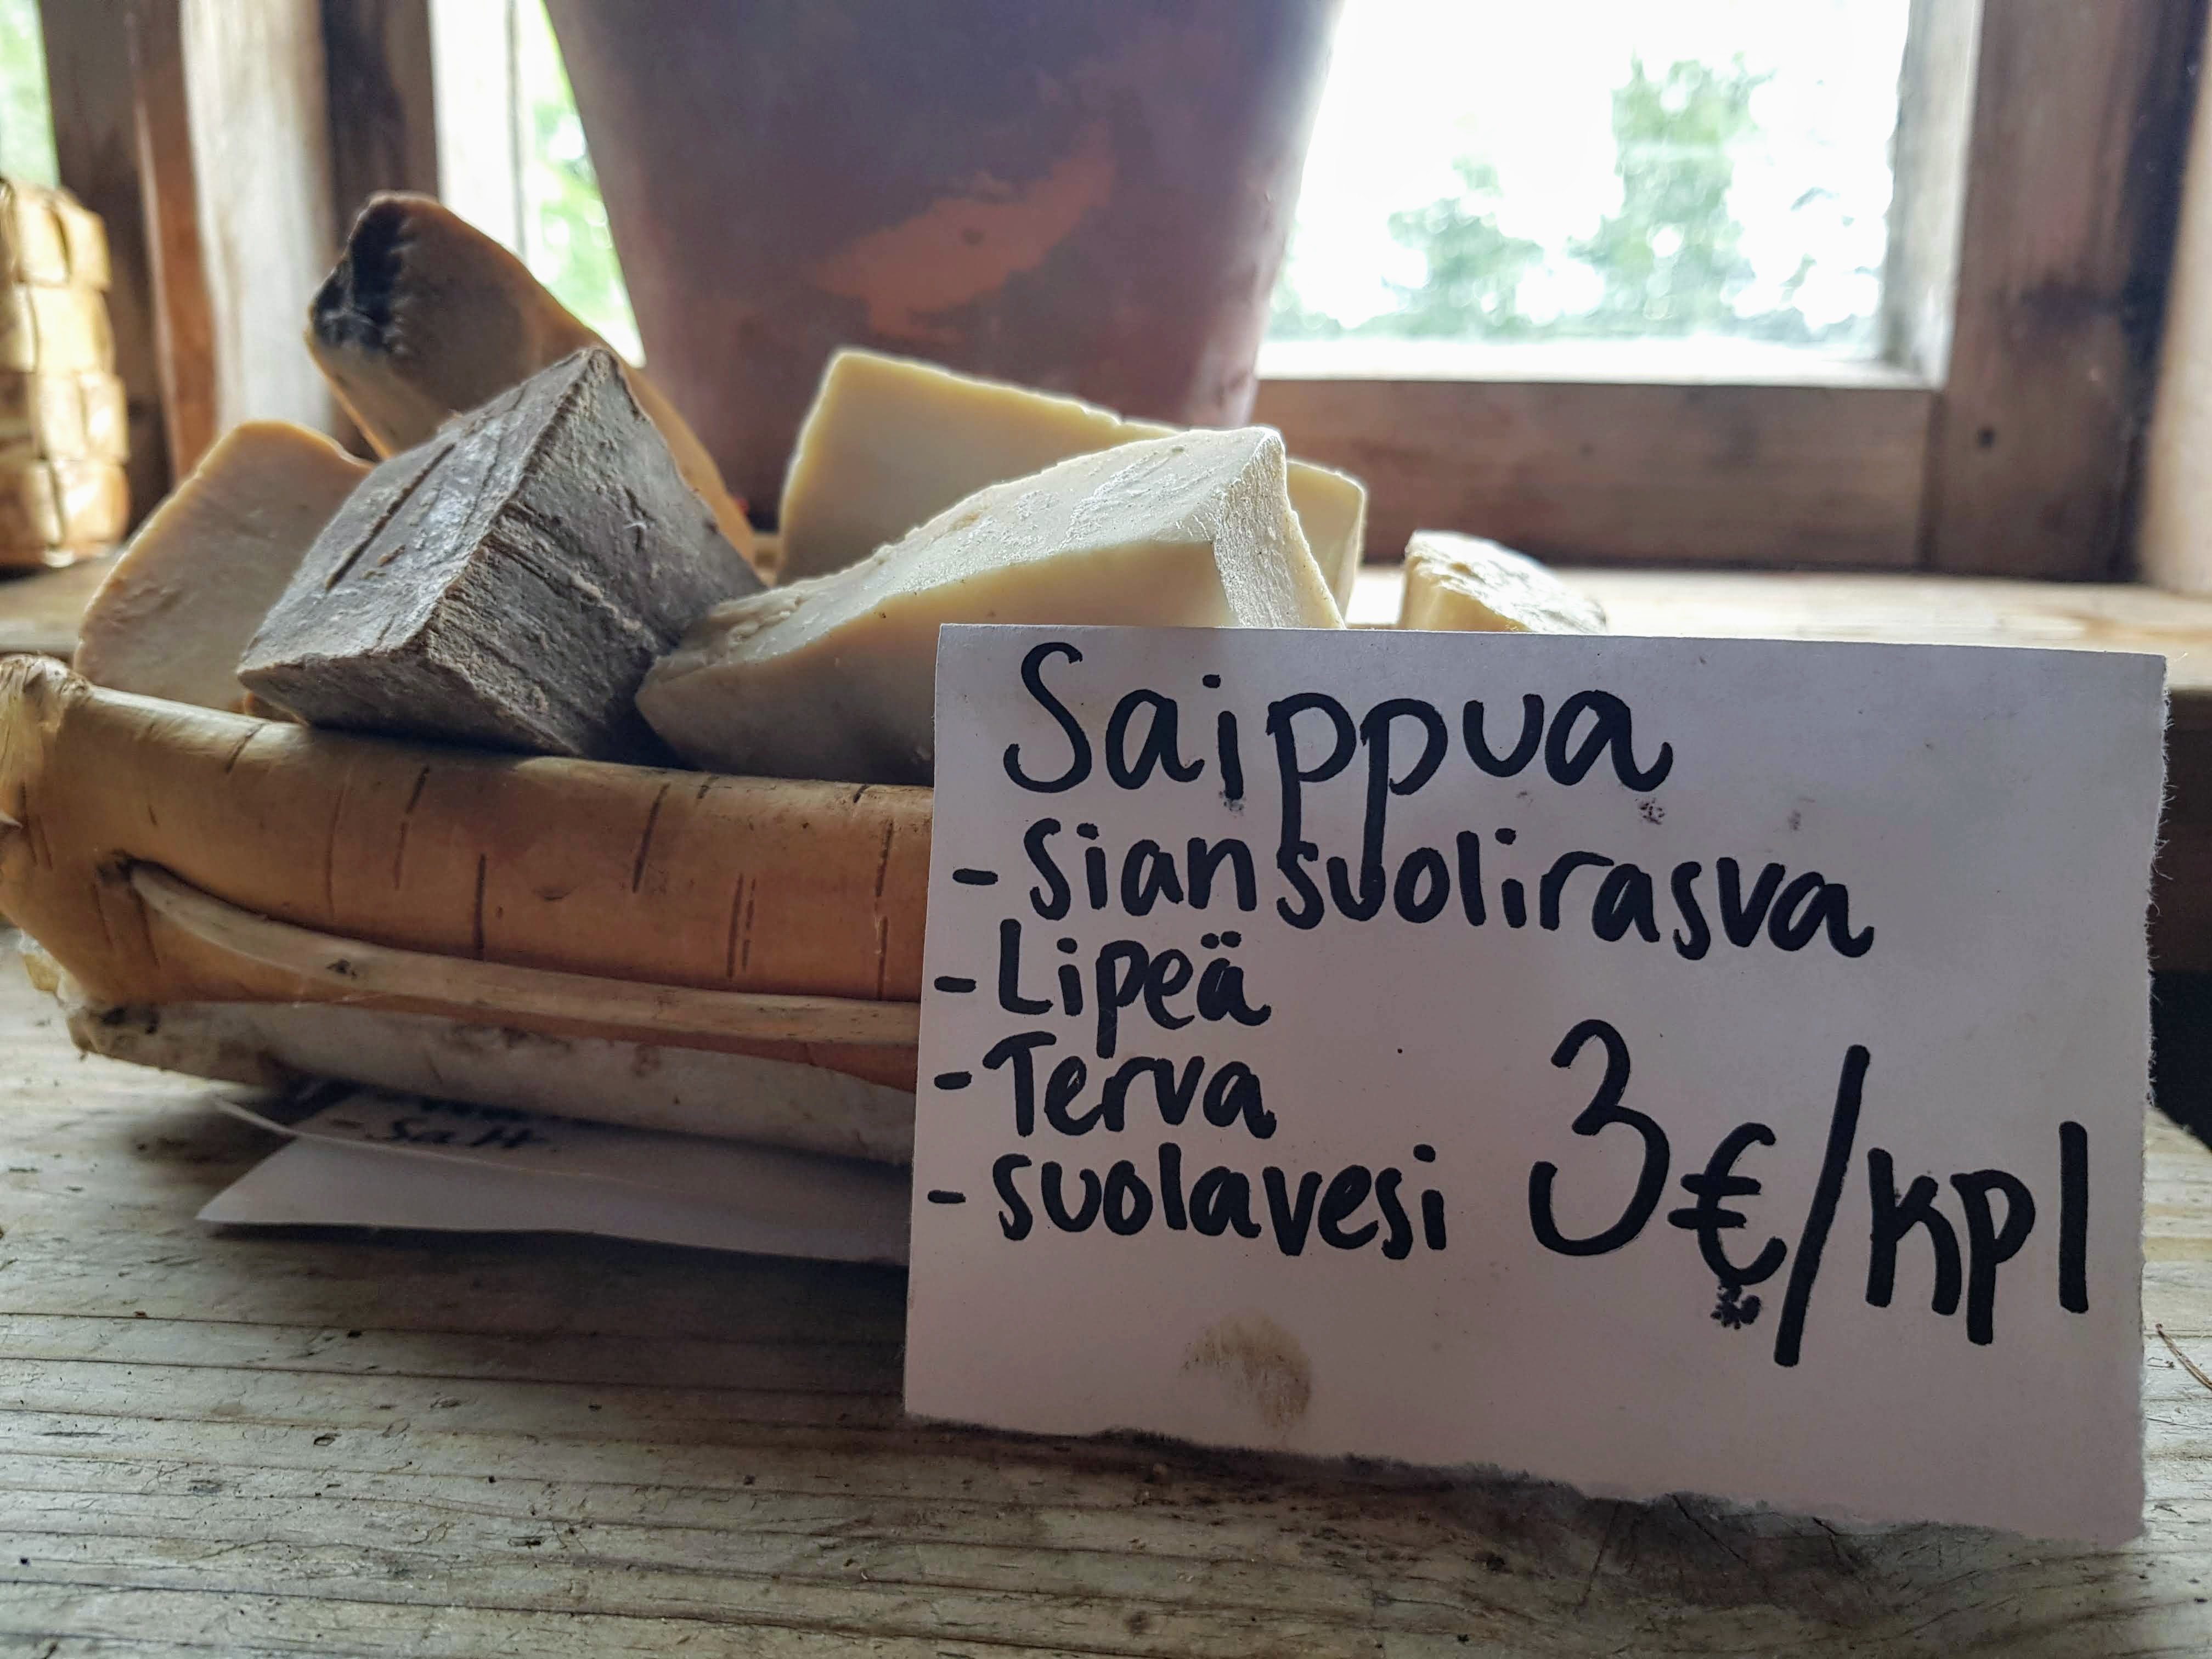 Saippua
- Siansuolirasva
- Lipeä
- Terva
- suolavesi 3€/kpl
- Salt